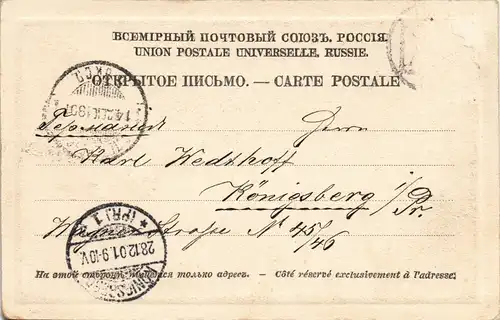 ВСЕМІРНЫЙ ПОЧТОВЫЙ СОЮЗЪ. РОССІЯ.
UNION POSTALE UNIVERSELLE. RUSSIE.
ОТКРЫТОЕ ПИСЬМО. — CARTE POSTALE
Германія Herrn
Karl Wedthoff
Königsberg i/Pr.
Wagnerstrasse N 45/46
(PR.) 1
28.12.01.9-10V.
На этой сторонѣ только адресъ. — Côté réservé exclusivement à l'adresse.